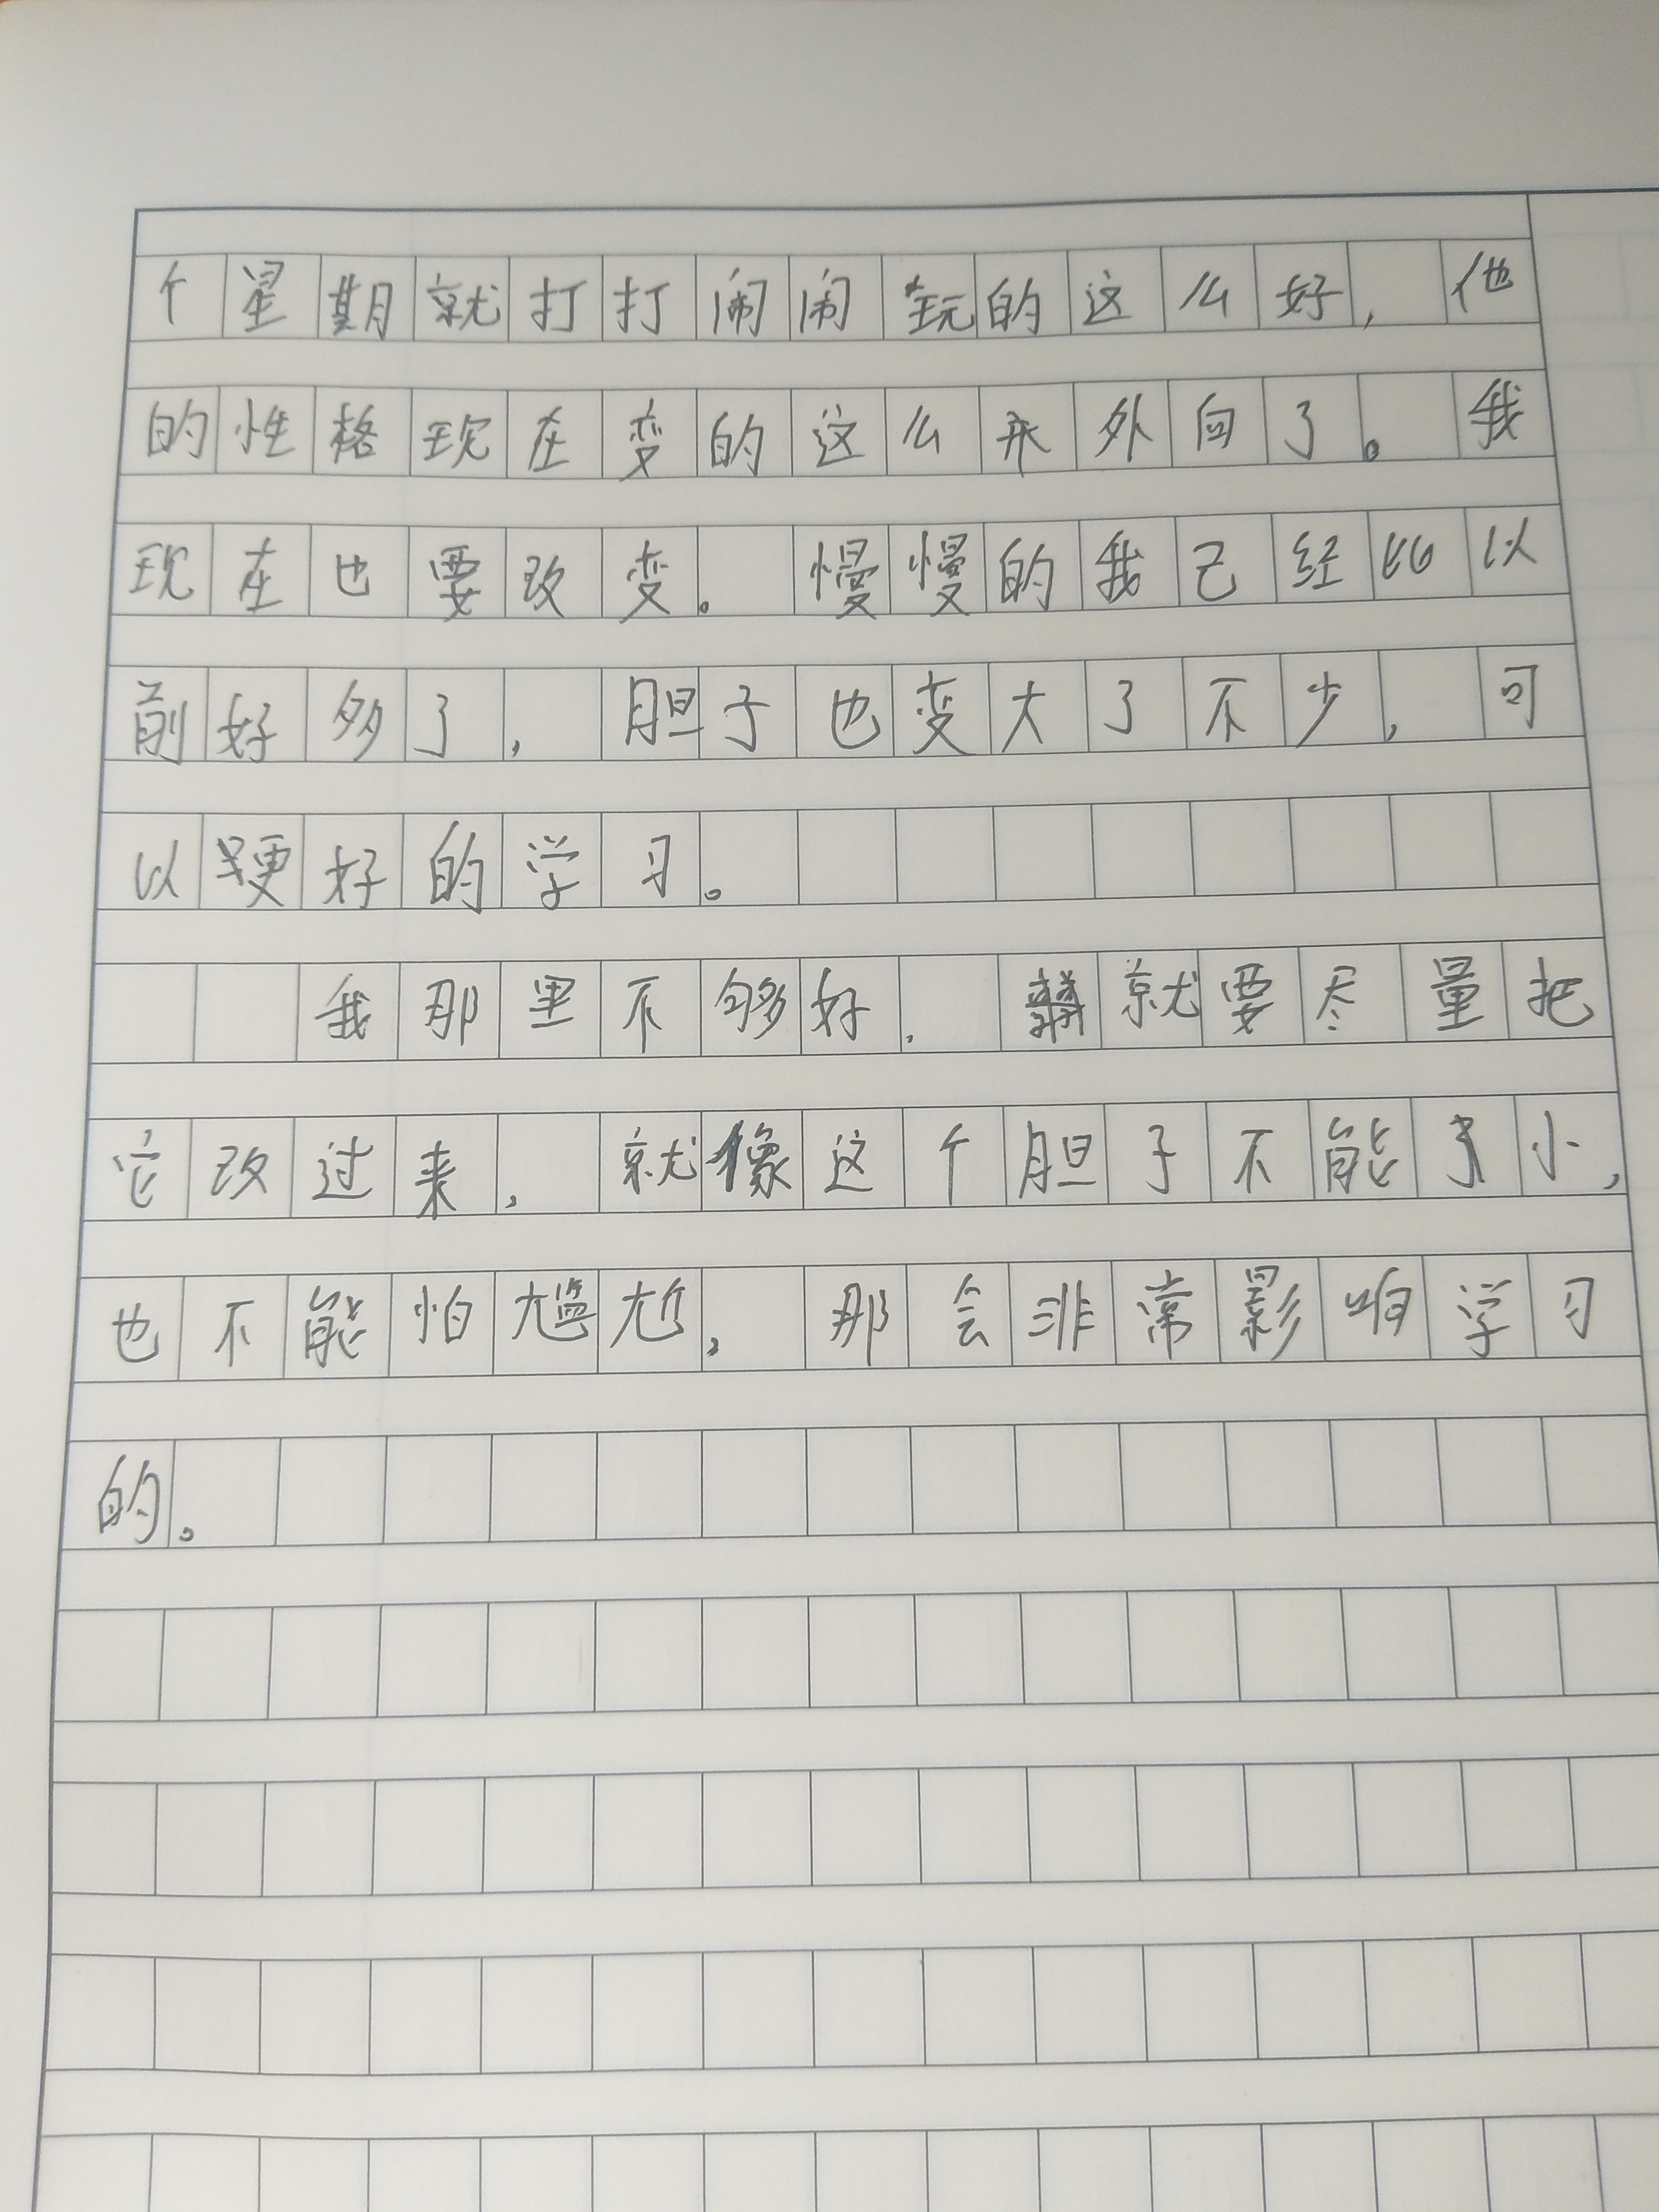 个星期就打打闹闹玩的这么好，他
的性格现在变的这么外向了。我
现在也要改变。慢慢的我己经比以
前好多了，胆子也变大了不少，可
以更好的学习。
我那里不够好，就要尽量把
它改过来，就像这个胆子不能小，
也不能怕尴尬，那会非常影响学习
的。